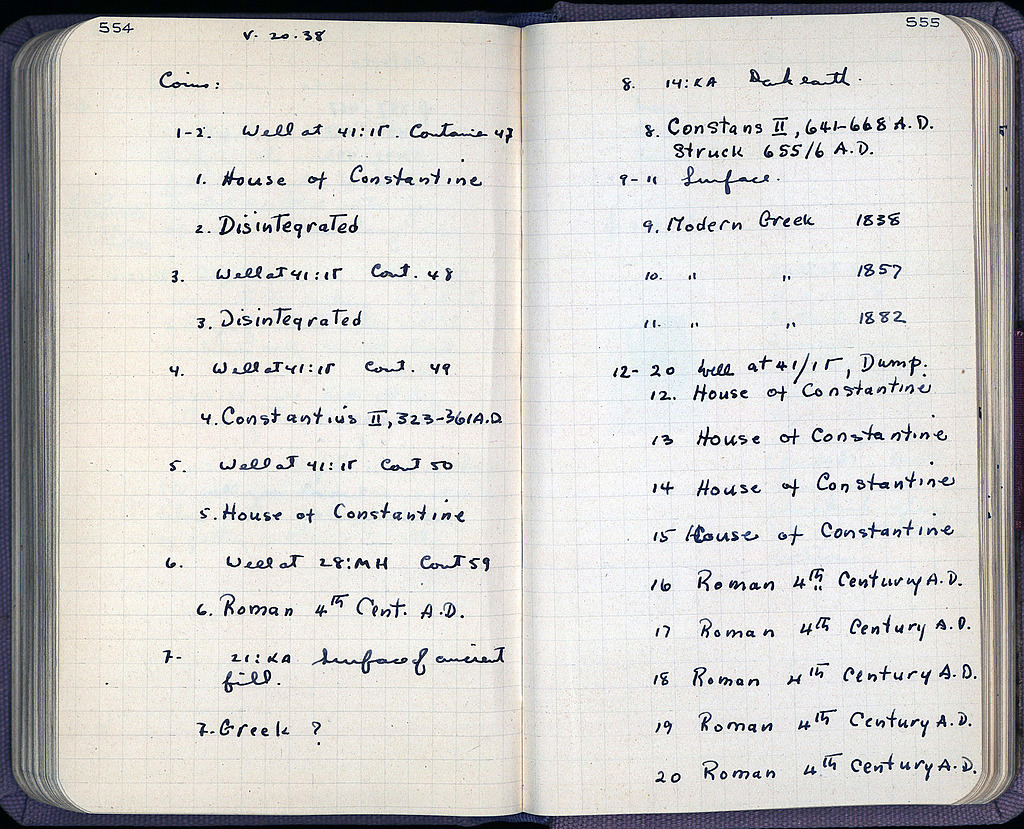 554
V. 20. 38
Coins:
1-2. Well at 41:ΙΓ. Container 47
1. House of Constantine
2. Disintegrated
3. Well at 41:ΙΓ Cont. 48
3. Disintegrated
4. Well at 41:ΙΓ Cont. 49
4. Constantius II, 323-361 A.D.
5. Well at 41:ΙΓ Cont 50
5. House of Constantine
6. Well at 28:ΜΗ Cont 59
6. Roman 4th Cent. A.D.
7- 21:ΚΑ Surface of ancient
fill.
7. Greek ?
555
8. 14:ΚΑ Dark earth.
8. Constans II, 641-668 A.D.
Struck 655/6 A.D.
9-11 Surface.
9. Modern Greek 1838
10. " " 1857
11. " " 1882
12-20 Well at 41/ΙΓ, Dump.
12. House of Constantine
13 House of Constantine
14 House of Constantine
15 House of Constantine
16 Roman 4th Century A.D.
17 Roman 4th Century A.D.
18 Roman 4th Century A.D.
19 Roman 4th Century A.D.
20 Roman 4th Century A.D.